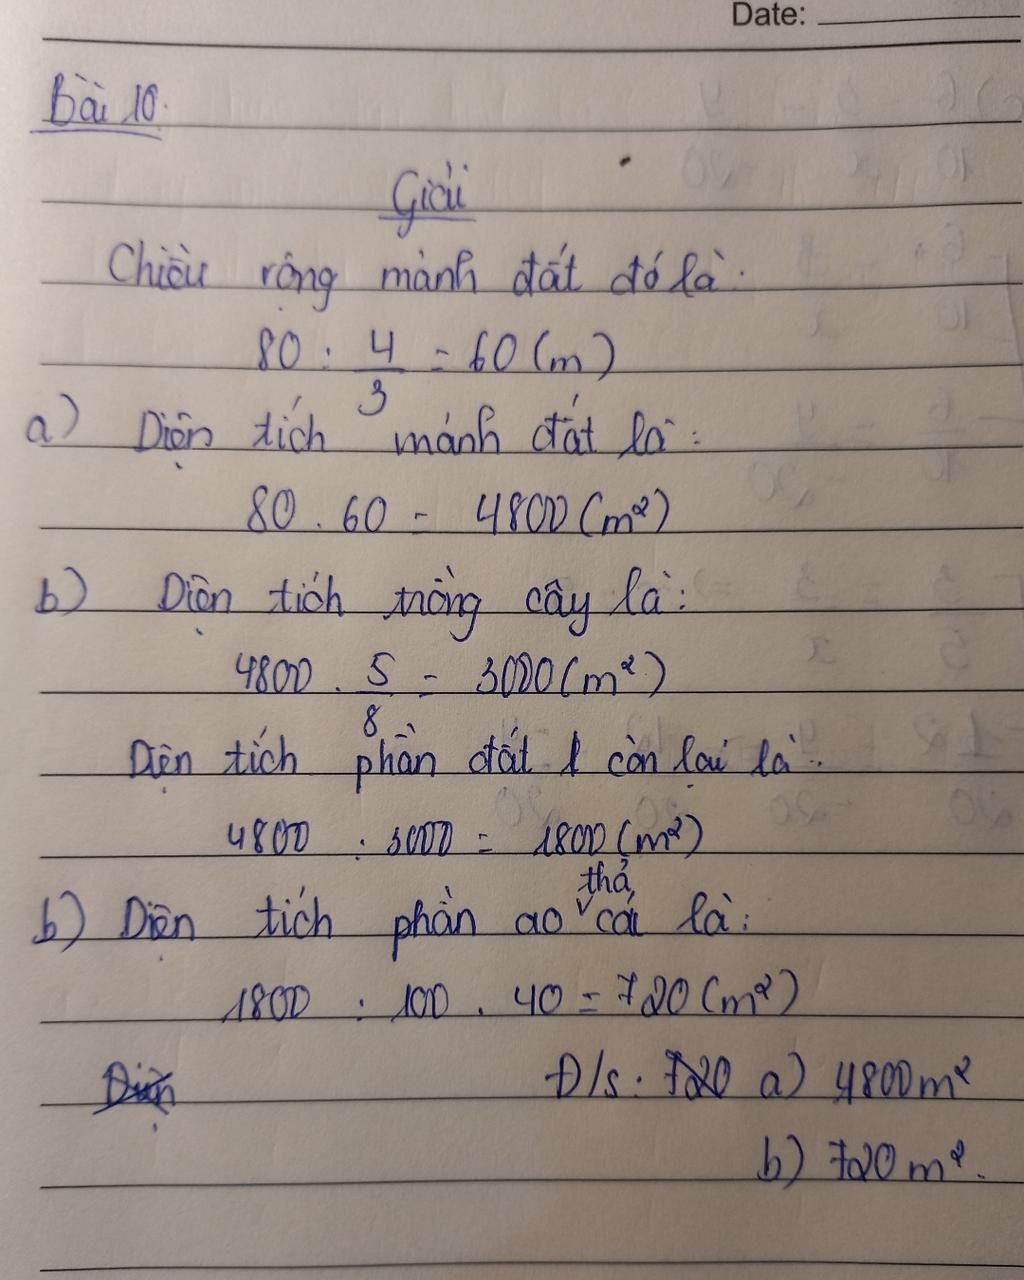 Date:
Bài 10.
Giải
Chiều rộng mảnh đất đó là:
80 : 4/3 = 60 (m)
a) Diện tích mảnh đất là:
80 . 60 = 4800 (m²)
b) Diện tích trồng cây là:
4800 . 5/8 = 3000 (m²)
Diện tích phần đất còn lại là:
4800 : 3000 = 1800 (m²)
b) Diện tích phần ao thả cá là:
1800 : 100 . 40 = 720 (m²)
Đ/s: a) 4800 m²
b) 720 m².